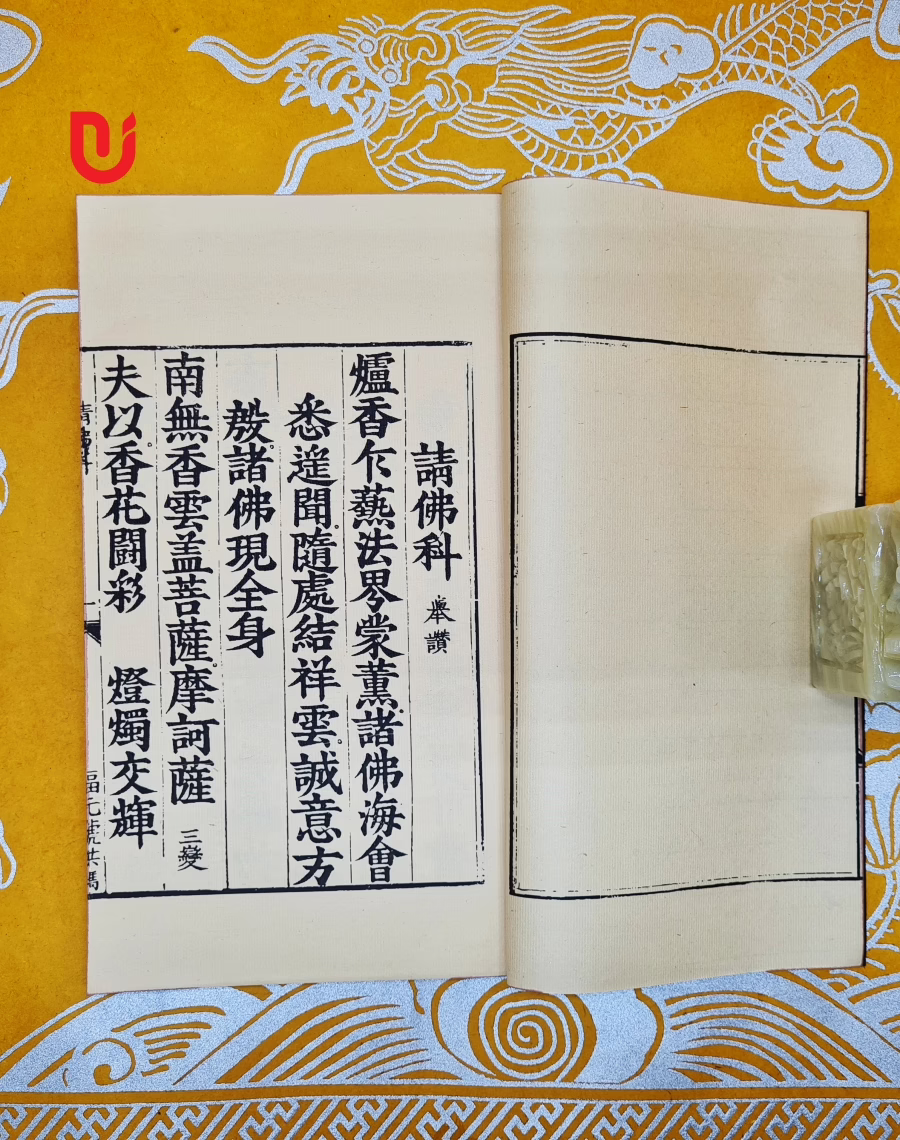 請佛科 舉讚
爐香乍爇法界蒙薰諸佛海會
悉遥聞隨處結祥雲誠意方
殷諸佛現全身
南無香雲盖菩薩摩訶薩 三變
夫以香花鬪彩 燈燭交輝
請佛科